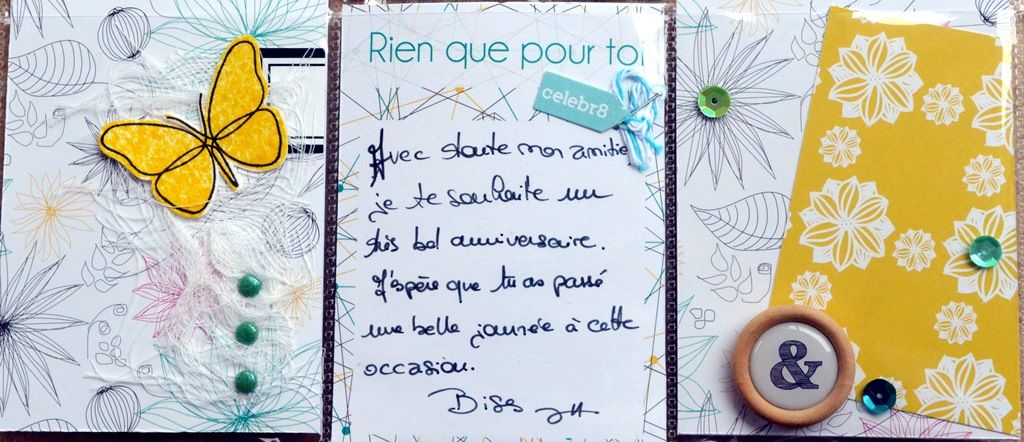 Rien que pour toi
celebr8
Avec toute mon amitié
je te souhaite un
très bel anniversaire.
J'espère que tu as passé
une belle journée à cette
occasion.
Bises
&